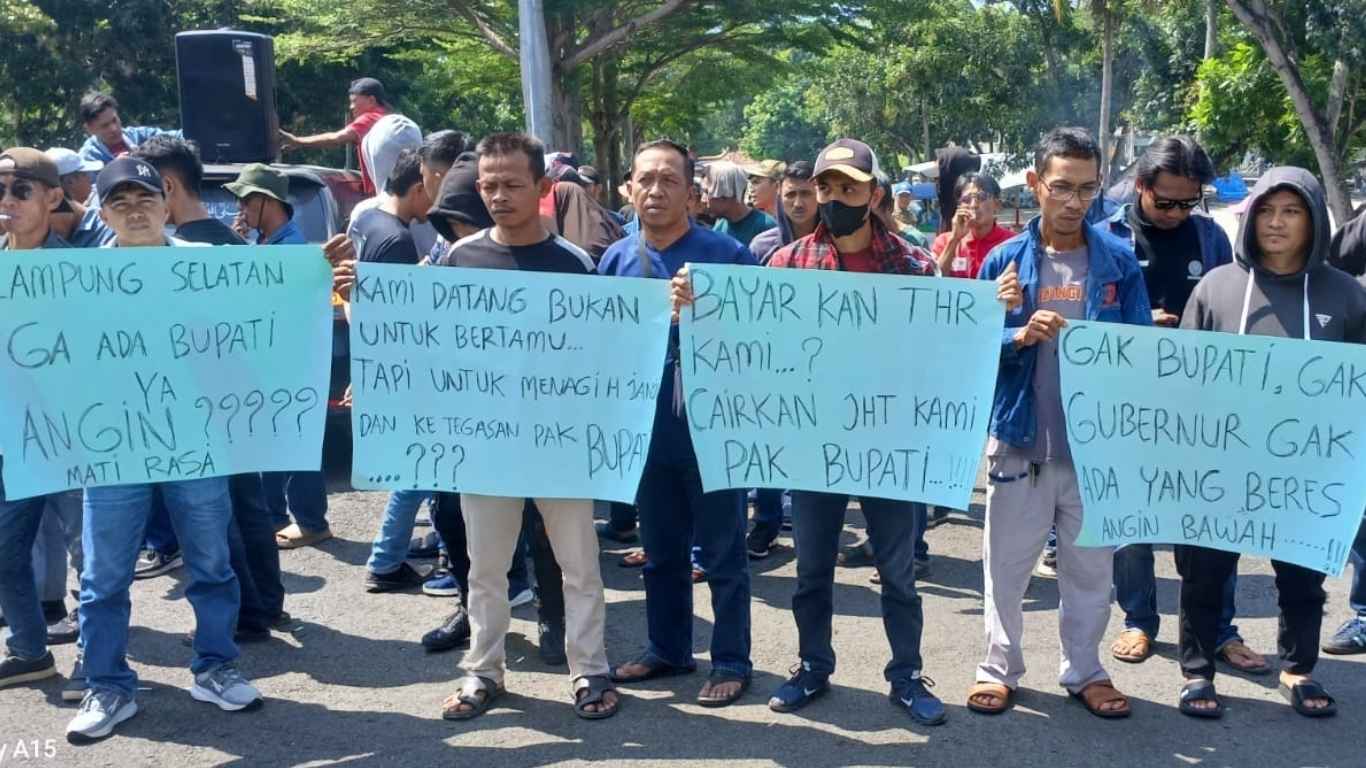 LAMPUNG SELATAN
GA ADA BUPATI
YA
ANGIN ?????
MATI RASA
KAMI DATANG BUKAN
UNTUK BERTAMU...
TAPI UNTUK MENAGIH JANJ
DAN KE TEGASAN PAK BUPATI
....???
BAYAR KAN THR
KAMI...?
CAIRKAN JHT KAMI
PAK BUPATI..!!!!
GAK BUPATI, GAK
GUBERNUR GAK
ADA YANG BERES
ANGIN BAWAH......!!!
y A15